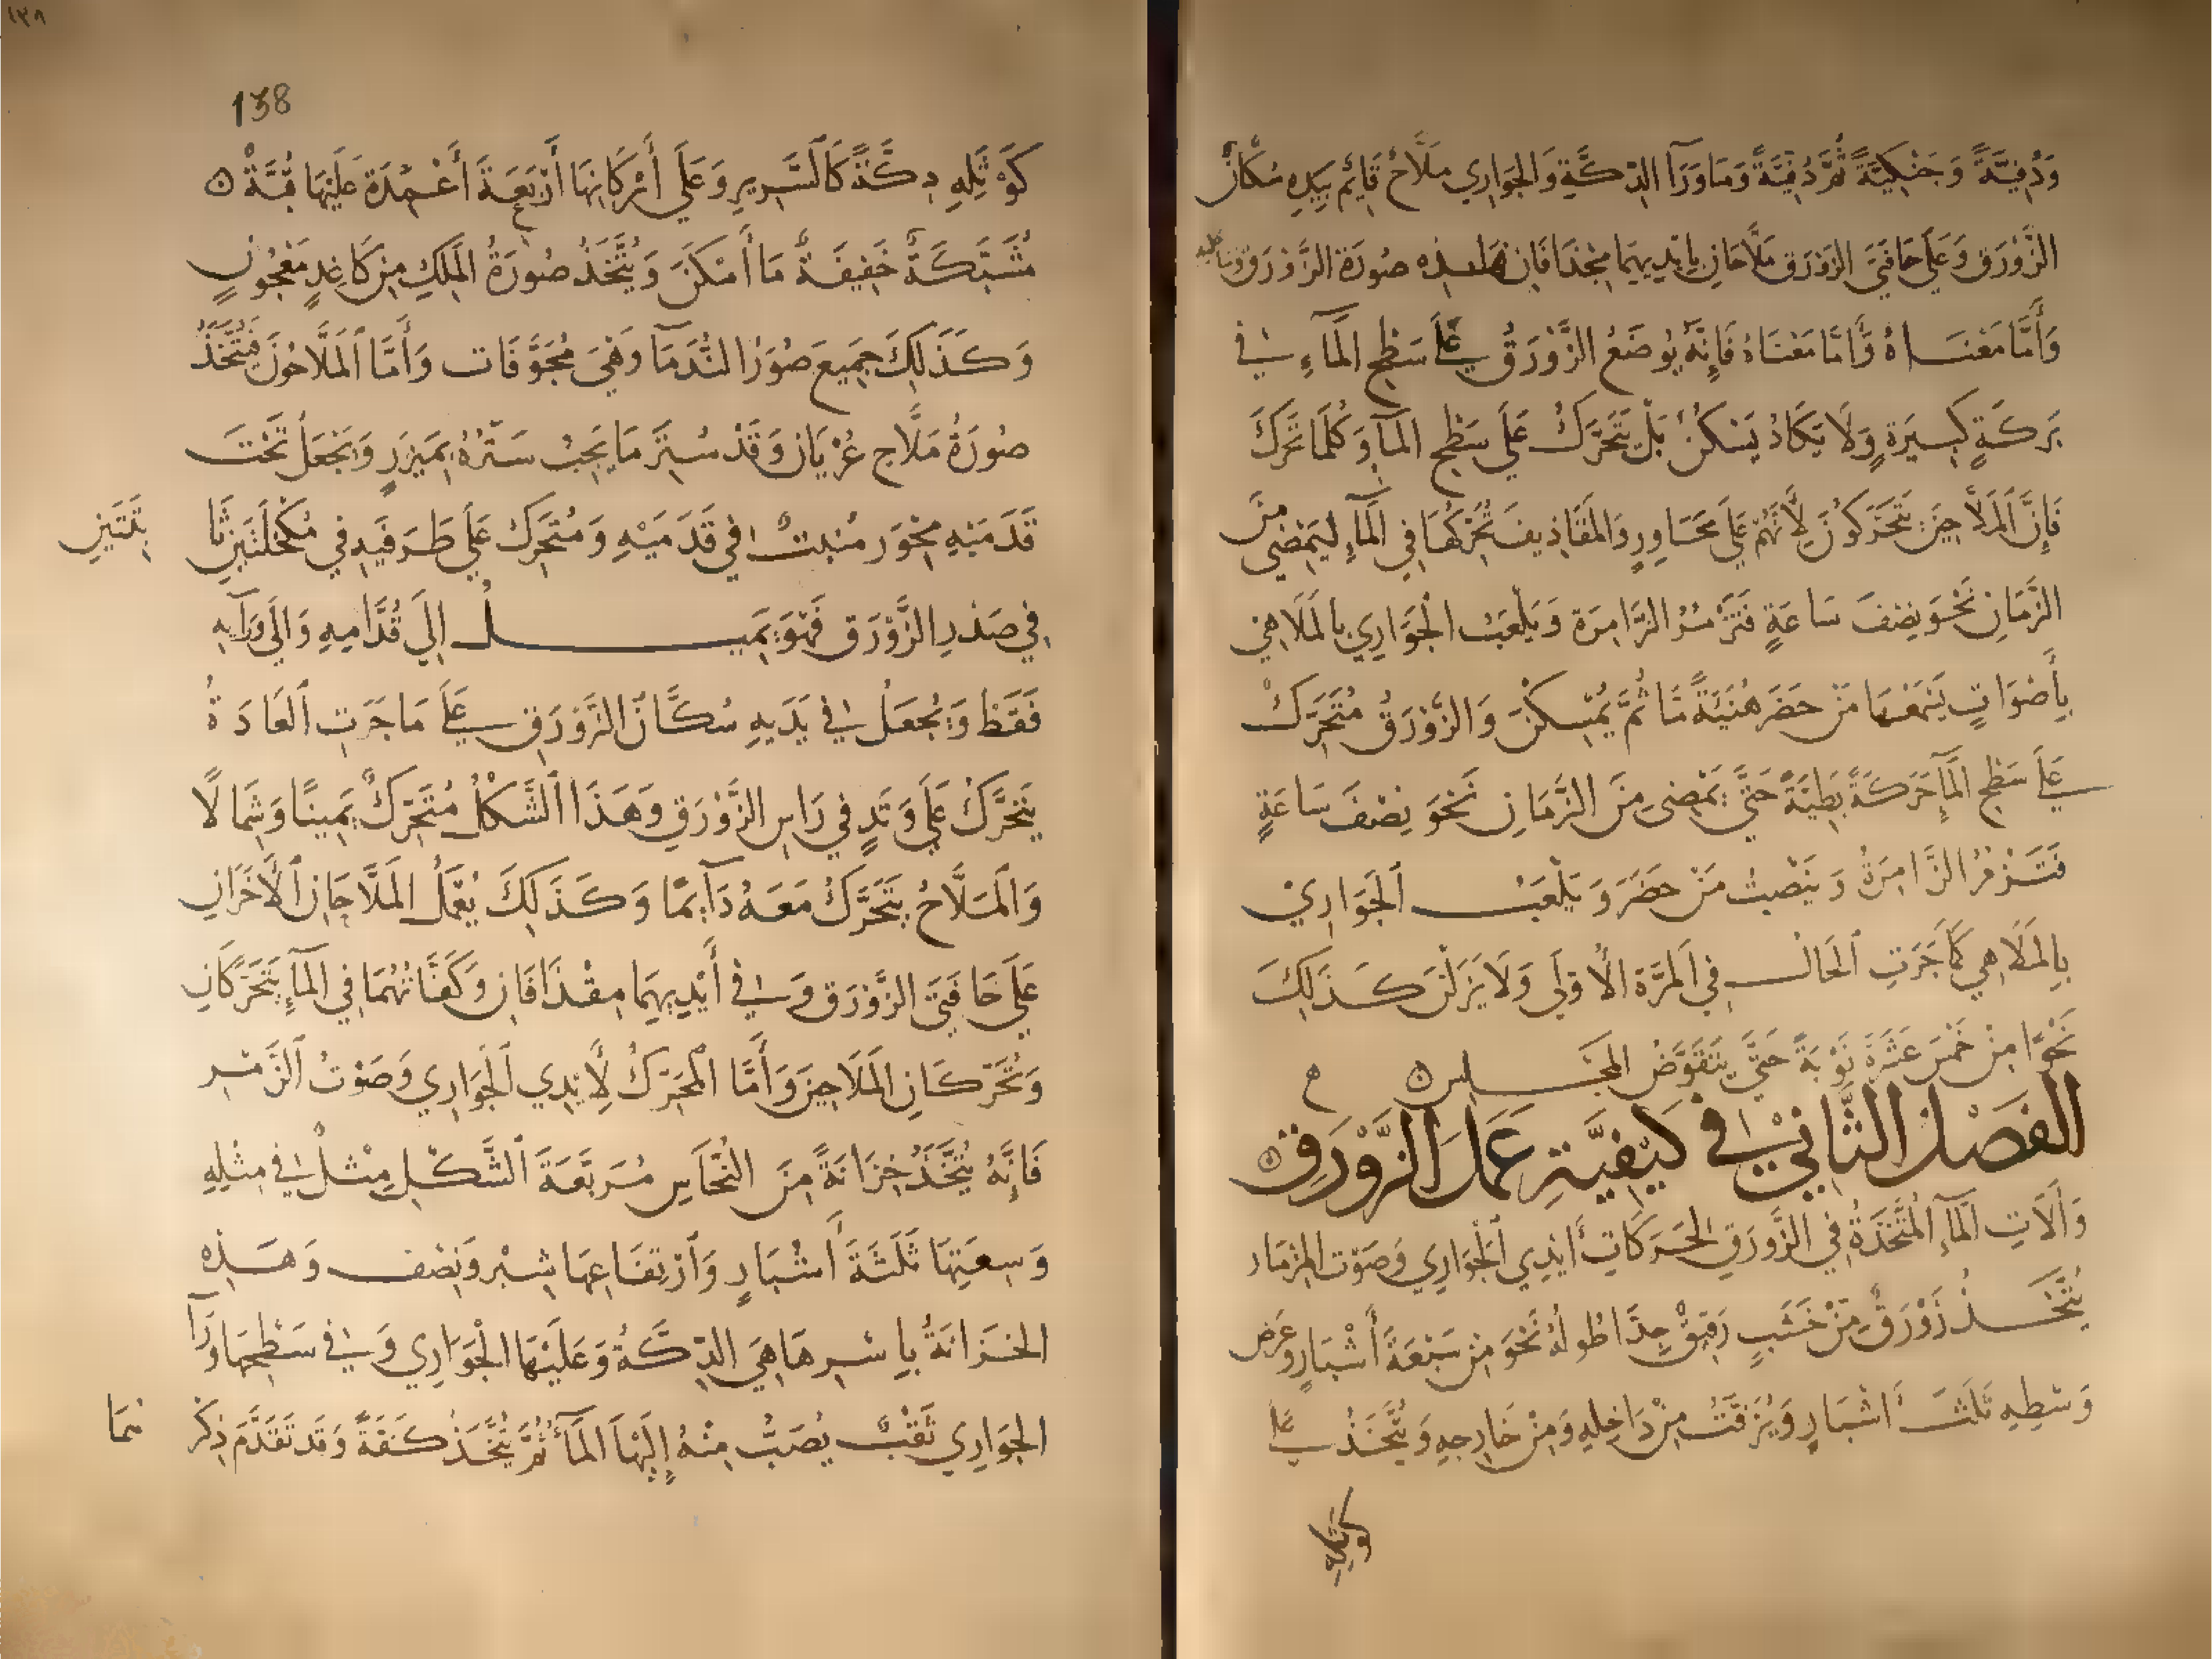 وَدُفِيَّةً وَجَنْكِيَّةً ثُمَّ دُفِيَّةً وَمَا وَرَآ الدِّكَّةِ وَالْجَوَارِي مَلَّاحٌ قَائِمٌ بِيَدِهِ سُكَّانُ
الزَّوْرَقِ وَعَلَى حَافَتَيِ الزَوْرَقِ مَلَّاحَانِ بِأَيْدِيهِمَا مِجْذَافَانِ هَذِهِ صُورَةُ الزَّوْرَقِ وَمَا عليه
وَأَمَّا مَعْنَاهُ وَأَمَّا مَعْنَاهُ فَإِنَّهُ يُوضَعُ الزَّوْرَقُ عَلَى سَطْحِ الْمَآءِ فِي
بَرَكَةٍ كَبِيرَةٍ وَلَا يَكَادُ يَسْكُنُ بَلْ يَتَحَرَّكُ عَلَى سَطْحِ الْمَآءِ وَكُلَمَا تَحَرَكَ
فَإِنَّ الْمَلَّاحِينَ يَتَحَرَكُونَ لِأَنَّهُمْ عَلَى مَحَاوِرٍ وَالْمَقَاذِيفَ تُحَرِّكُهَا فِي الْمَآءِ لِيَمْضِي مِنَ
الزَّمَانِ نَحْوَ نِصْفَ سَاعَةٍ فَتَزْمُرُ الزَّامِرَةُ وَيَلْعَبُ الْجَوَارِي بِالْمَلَاهِي
بِأَصْوَاتٍ يَسْمَعُهَا مَنْ حَضَرَ هُنَيْئَةً مَا ثُمَّ يُمْسِكْنَ وَالزَّوْرَقُ مُتَحَرَّكْ
عَلَى سَطْحِ الْمَآءِ حَرَكَةً بَطِيَّةً حَتَّى يَمْضِى مِنَ الزَّمَانِ نَحْوَ نِصْفَ سَاعَةٍ
فَتَزْمُرُ الزَّامِرَةُ وَيَنْصِتُ مَنْ حَضَرَ وَيَلْعَبُ الْجَوَارِيْ
بِالْمَلَاهِي كَمَا جَرَتِ الْحَالُ فِي الْمَرَّةِ الْأُوْلَى وَلَا يَزَلْنَ كَذَلِكَ
نَحْوًا مِنْ خَمْسَ عَشْرَةَ نَوْبَةً حَتَّى يَتَقَوَّضَ الْمَجْلِس ۞ م
الفَصْلُ الثَّانِيْ فِي كَيْفِيَّةِ عَمَلِ الزَّوْرَقِ ۞
وَآلَاتِ الْمَآءِ الْمُتَّخَذَةُ فِي الزَّوْرَقِ لِحَرَكَاتِ أَيْدِي الْجَوَارِي وَصَوْتِ الْمِزْمَار
يُتَّخَذُ زَوْرَقٌ مِنْ خَشَبٍ رَقِيقٍ جِدًّا طُولُهُ نَحْوَ مِنْ سَبْعَةَ أَشْبَارٍ وعَرْض
وَسْطِهِ ثَلَثَ أَشْبَارٍ وَيُزَفَّتُ مِنْ دَاخِلِهِ وَمِنْ خَارِجِهِ وَيُتَّخَذُ عَلَى
كوثله
١٣٨
138
كَوْثَلِهِ دِكَّةً كَالسَّرِيرِ وَعَلَى أَرْكَانِهَا أَرْبَعَةَ أَعْمِدَة عَلَيْهَا قُبَّةْ ۞
مُشَبَّكَةٌ خَفِيفَةٌ مَا أَمْكَنَ وَيُتَّخَذُ صُورَةُ الْمَلِكِ مِنْ كَاغِدٍ مَعْجُونٍ
وَكَذَلِكَ جَمِيعَ صُوَرُ النُّدَمَآ وَهْيَ مُجَوَّفَات وَأَمَّا الْمَلَّاحُونَ فَيُتَّخَذُ
صُورَةُ مَلَّاحٍ عُرْيَانٍ وَقَدْ سُتِرَ مَا يَجِبُ سَتْرُهُ بِمَيزَرٍ وَيَجْعَلُ تَحْتَ
قَدَمَيْهِ مِحْوَر مُثْبَتٌ فِي قَدَمَيْهِ وَمُتَحَرِّكٌ عَلَى طَرَفَيْهِ فِي مُكْحُلَتَيْنِ ثَا بِتَتَيْنِ
فِي صَدْرِ الزَّوْرَقِ فَهْوَ يَمِيلُ إِلَى قُدَّامِهِ وَإِلَى وَرَآيِهِ
فَقَطْ وَيُجْعَلُ فِي يَدَيْهِ سُكَّانُ الزَّوْرَقِ عَلَى مَا جَرَتِ الْعَادَةُ
يَتَحَرَّكُ عَلَى وَتَدٍ فِي رَاسِ الزَّوْرَقِ وَهَذَا الشَّكْلُ مُتَحَرِّكٌ يَمِينًا وَشِمَالًا
وَالْمَلَّاحُ يَتَحَرَّكُ مَعَهُ دَآيِمًا وَكَذَلِكَ يُعْمَلُ الْمَلَّاحَانِ الْأَخَرَانِ
عَلَى حَافَتَيِ الزَّوْرَقِ وَفِي أَيْدِيهِمَا مِقْذَافَانِ وَكَفَّاتُهُمَا فِي الْمَآءِ يَتَحَرَّكَانِ
وَتُحَرِّكَانِ الْمَلَاحِينَ وَأَمَّا الْمُحَرِّكُ لِأَيْدِي الْجَوَارِي وَصَوْتُ الزَّمْرِ
فَإِنَّهُ يُتَّخَذُ خِزَانَةً مِنَ النُّحَاسِ مُرَبَّعَةَ الشَّكْلِ مِثْلُ فِي مِثْلِهِ
وَسِعَتِهَا ثَلَثَةَ أَشْبَارٍ وَارْتِفَاعِهَا شِبْر وَنِصْف وَهَذِهْ
الخَزَانَةُ بِأَسْرِهَا هِيَ الدِّكَّةُ وَعَلَيْهَا الْجَوَارِي وَفِي سَطْحِهَا وَرَآ
الْجَوَارِي ثَقْبٌ يُصَبُّ مِنْهُ إِلَيْهَا الْمَآءُ ثُمَّ يُتَّخَذُ كَفَةً وَقَد تَقَدَّمَ ذِكْرُ هَا